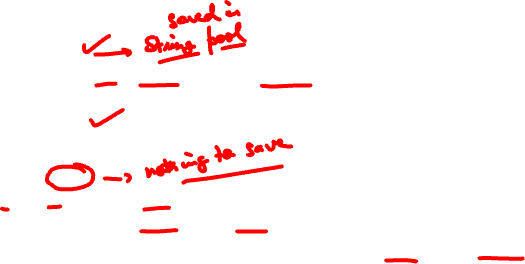 saved in
string pool
nothing to save